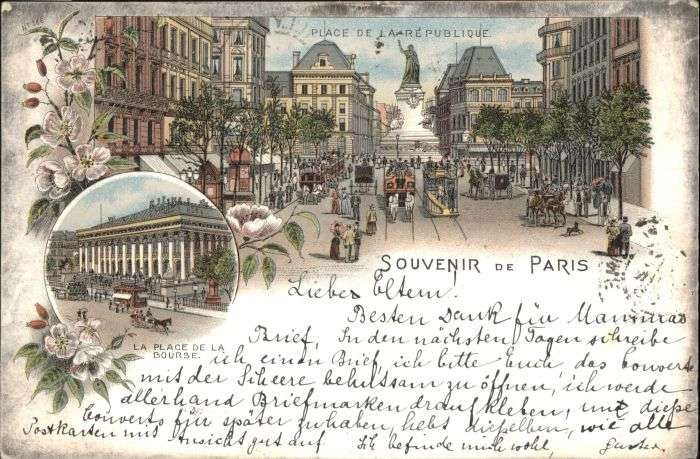 PLACE DE LA RÉPUBLIQUE.
SOUVENIR DE PARIS
LA PLACE DE LA
BOURSE.
Lieber Eltern!
Besten Dank für Mamma's
Brief, In den nächsten Tagen schreibe
ich einen Brief, ich bitte Euch, das Couvert
mit der Scheere behutsam zu öffnen, ich werde
allerhand Briefmarken draufkleben, und diese
Couverts für später zu haben, hebt dieselben, wie alle
Postkarten mit Ansicht gut auf. Ich befinde mich wohl,